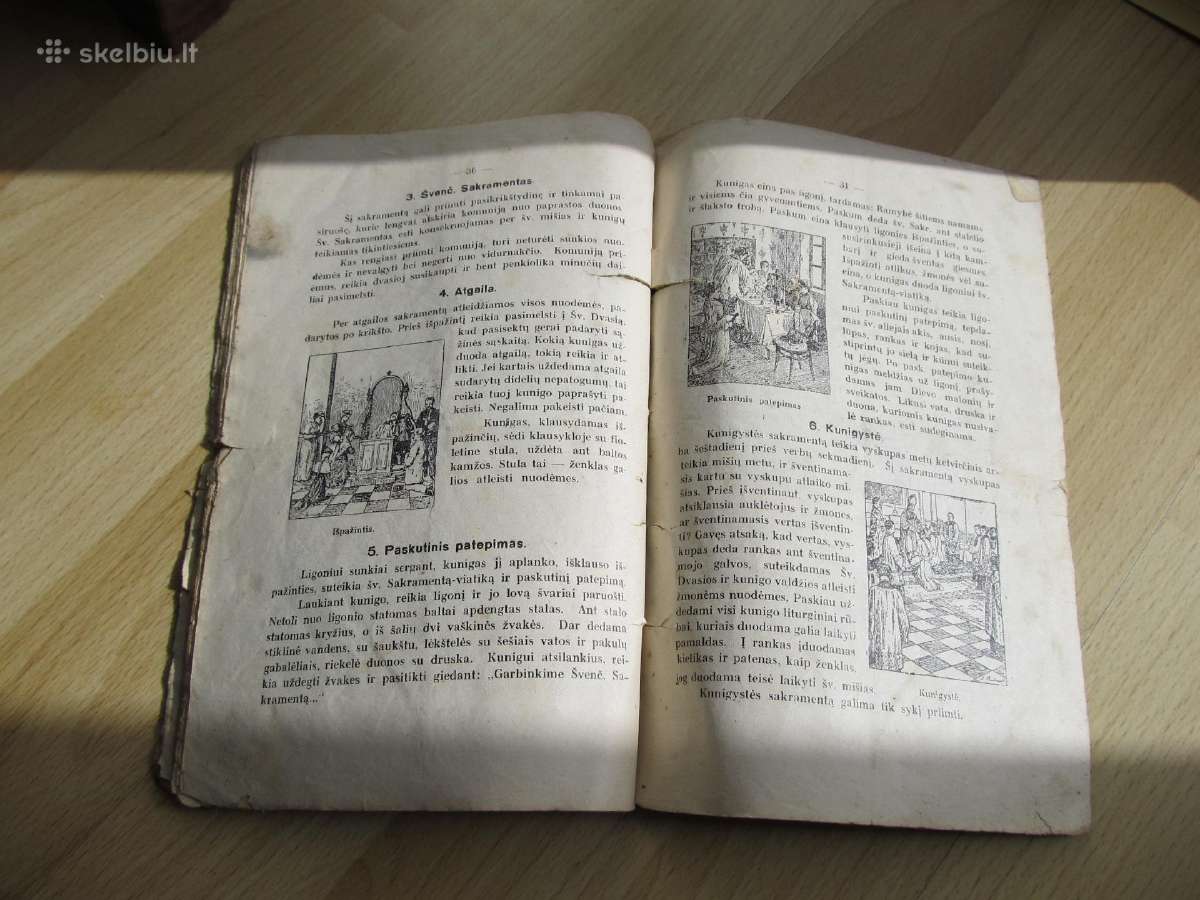 skelbiu.lt
— 30 —
3. Švenč. Sakramentas.
Šį sakramentą gali priimti pasikrikštydinę ir tinkamai pa-
siruošę, kurie lengvai atskiria komuniją nuo paprastos duonos
Šv. Sakramentas esti konsekruojamas per šv. mišias ir kunigų
teikiamas tikintiesiems.
Kas rengiasi priimti komuniją, turi neturėti sunkios nuo-
dėmės ir nevalgyti bei negerti nuo vidurnakčio. Komuniją pri-
ėmus, reikia dvasioj susikaupti ir bent penkiolika minučių daj-
liai pasimelsti.
4. Atgaila.
Per atgailos sakramentą atleidžiamos visos nuodėmės, pa-
darytos po krikšto. Prieš išpažintį reikia pasimelsti į Šv. Dvasią,
kad pasisektų gerai padaryti są-
žinės sąskaitą. Kokią kunigas už-
duoda atgailą, tokią reikia ir at-
likti. Jei kartais uždedama atgaila
sudarytų didelių nepatogumų, tai
reikia tuoj kunigo paprašyti pa-
keisti. Negalima pakeisti pačiam.
Kunigas, klausydamas iš-
pažinčių, sėdi klausykloje su fio-
letine stula, uždėta ant baltos
kamžos. Stula tai — ženklas ga-
lios atleisti nuodėmes.
Išpažintis.
5. Paskutinis patepimas.
Ligoniui sunkiai sergant, kunigas jį aplanko, išklauso iš-
pažinties, suteikia šv. Sakramentą-viatiką ir paskutinį patepimą.
Laukiant kunigo, reikia ligonį ir jo lovą švariai paruošti.
Netoli nuo ligonio statomas baltai apdengtas stalas. Ant stalo
statomas kryžius, o iš šalių dvi vaškinės žvakės. Dar dedama
stiklinė vandens, su šaukštu, lėkštelės su šešiais vatos ir pakulų
gabalėliais, riekelė duonos su druska. Kunigui atsilankius, rei-
kia uždegti žvakes ir pasitikti giedant: „Garbinkime Švenč. Sa-
kramentą...“
— 31 —
Kunigas eina pas ligonį, tardamas: Ramybė šitiems namams
ir visiems čia gyvenantiems. Paskum deda šv. Sakr. ant stalelio
ir šlaksto trobą. Paskum eina klausyti ligonies išpažinties, o su-
susirinkusieji išeina į kitą kam-
barį ir gieda šventas giesmes.
Išpažintį atlikus, žmonės vėl su-
eina, o kunigas duoda ligoniui šv.
Sakramentą-viatiką.
Paskiau kunigas teikia ligo-
niui paskutinį patepimą, tepda-
mas šv. aliejais akis, ausis, nosį,
lūpas, rankas ir kojas, kad su-
stiprintų jo sielą ir kūnui suteik-
tų jėgų. Po pask. patepimo ku-
nigas meldžias už ligonį, prašy-
damas jam Dievo malonių ir
sveikatos. Likusi vata, druska ir
duona, kuriomis kunigas nusival-
lė rankas, esti sudeginama.
Paskutinis patepimas
6. Kunigystė.
Kunigystės sakramentą teikia vyskupas metų ketvirčiais ar-
ba šeštadienį prieš verbų sekmadienį. Šį sakramentą vyskupas
teikia mišių metu, ir šventinama-
sis kartu su vyskupu atlaiko mi-
šias. Prieš išventinant, vyskupas
atsiklausia auklėtojus ir žmones,
ar šventinamasis vertas išventin-
ti? Gavęs atsaką, kad vertas, vys-
kupas deda rankas ant šventina-
mojo galvos, suteikdamas Šv.
Dvasios ir kunigo valdžios atleisti
žmonėms nuodėmes, Paskiau už-
dedami visi kunigo liturginiai rū-
bai, kuriais duodama galia laikyti
pamaldas. Į rankas įduodamas
kielikas ir patenas, kaip ženklas,
jog duodama teisė laikyti šv. mišias.
Kunigystė.
Kunigystės sakramentą galima tik sykį priimti.